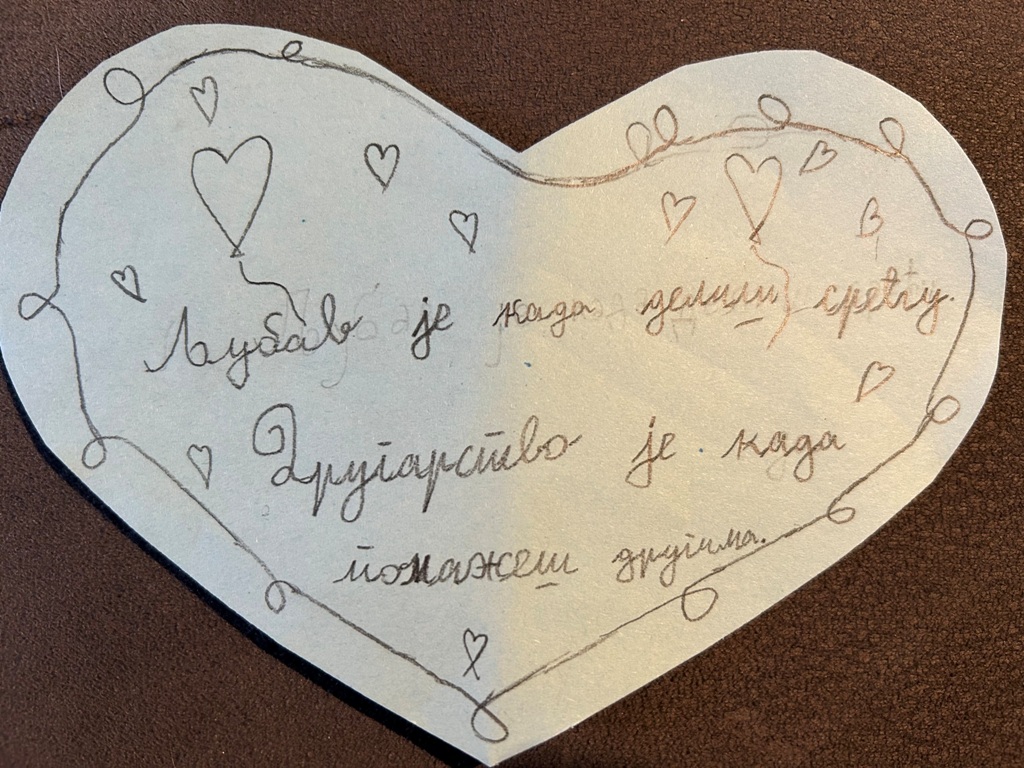 Љубав је када делиш срећу.
Другарство је када
помажеш другима.